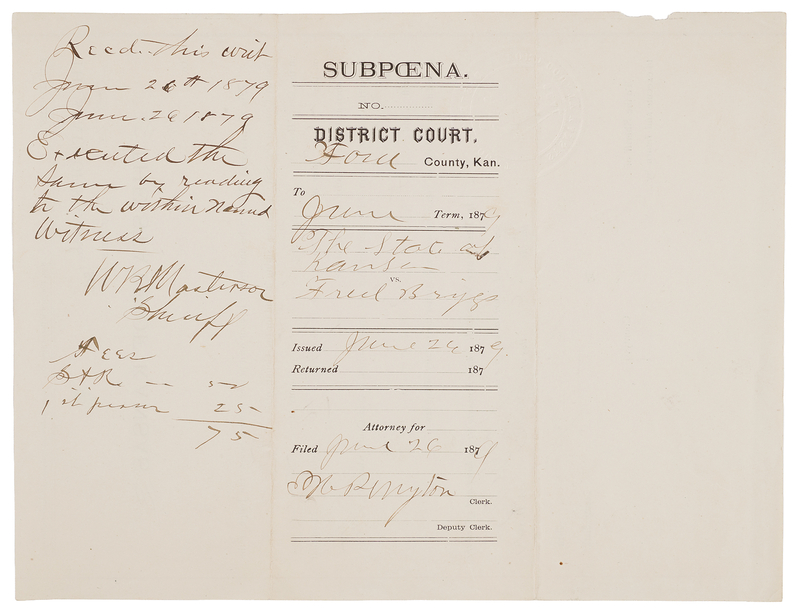 Recd. this writ
June 26th 1879
June. 26 1879
Executed the
Same by reading
to the within named
Witness
W B Masterson
Sheriff
Fees
S & R -- 50
1 st person 25
75
SUBPŒNA.
NO.
DISTRICT COURT,
Ford County, Kan.
To
June Term, 1879
The State of
Kansas
vs.
Fred Brigs
Issued June 26 1879.
Returned 187
Attorney for
Filed June 26 1879
Clerk.
Deputy Clerk.